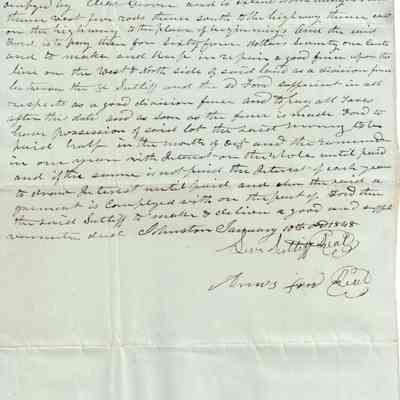 occupyed by
thence west five rods thence south to the highway thence east
on the highway to the place of beginning And the said
Ford is to pay them for Sixty four dollars seventy one cents
and to make and keep in repair a good fence upon the
line on the West & North side of said land as a division fence
between the sd Sutliff and the sd Ford sufficient in all
respects as a good division fence and to pay all taxes
after the date and as soon as the fence is made Ford to
have possession of said lot the said money to be
paid half in the month of Oct and the remaind
in one year with Interest on the whole until paid
and if the same is not paid the Interest of each year
to draw Interest until paid and when the said a
greement is complyed with on the part of Ford then
the said Sutliff to make & deliver a good and suffi
deed Johnston January 10th AD 1848
Levi Sutliff Seal
Ford Seal